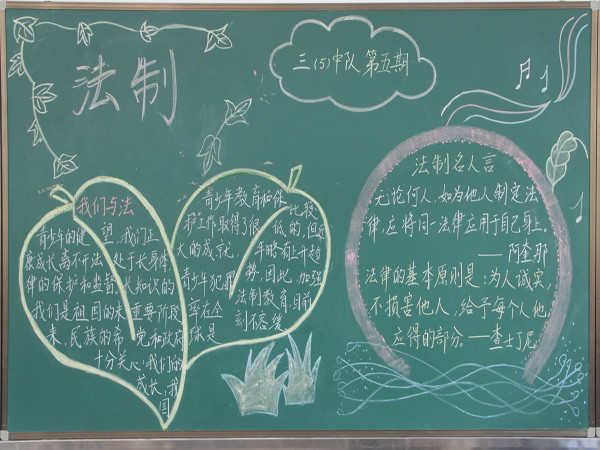 法制
三(5)中队 第五期
我们与法
青少年的健 望，我们正
康成长离不开法 处于长身体
律的保护和监督， 长知识的
我们是祖国的未 重要阶段
来，民族的希 党和政府
十分关心我们的
成长，我
国
青少年教育和保
护工作取得了很
大的成就，
青少年犯罪
率在全
球是
比较
低的，但近
年略有上升趋
势，因此，加强
法制教育，目前
刻不容缓
法制名人言
无论何人，如为他人制定法
律，应将同一法律应用于自己身上。
——阿奎那
法律的基本原则是：为人诚实，
不损害他人，给予每个人他
应得的部分。——查士丁尼